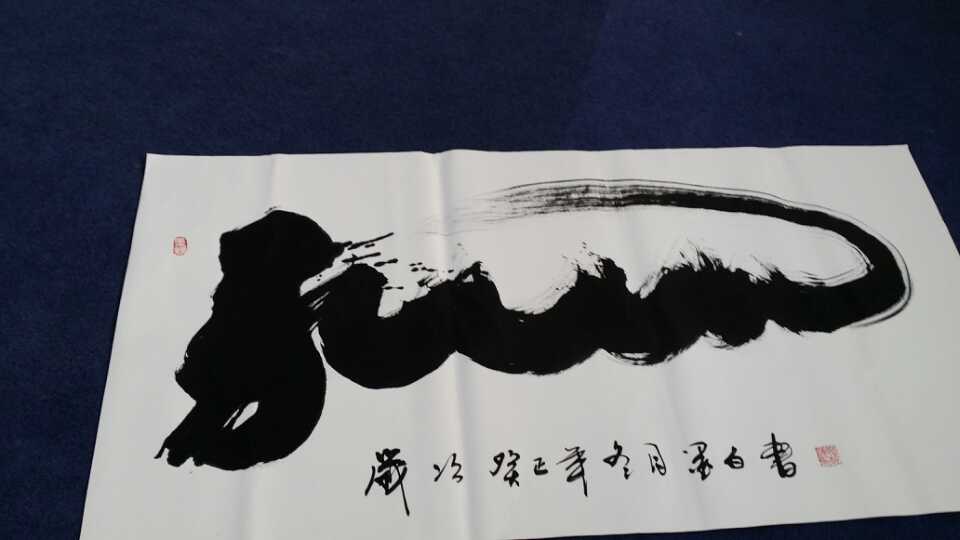 歲次癸巳年冬月墨白書